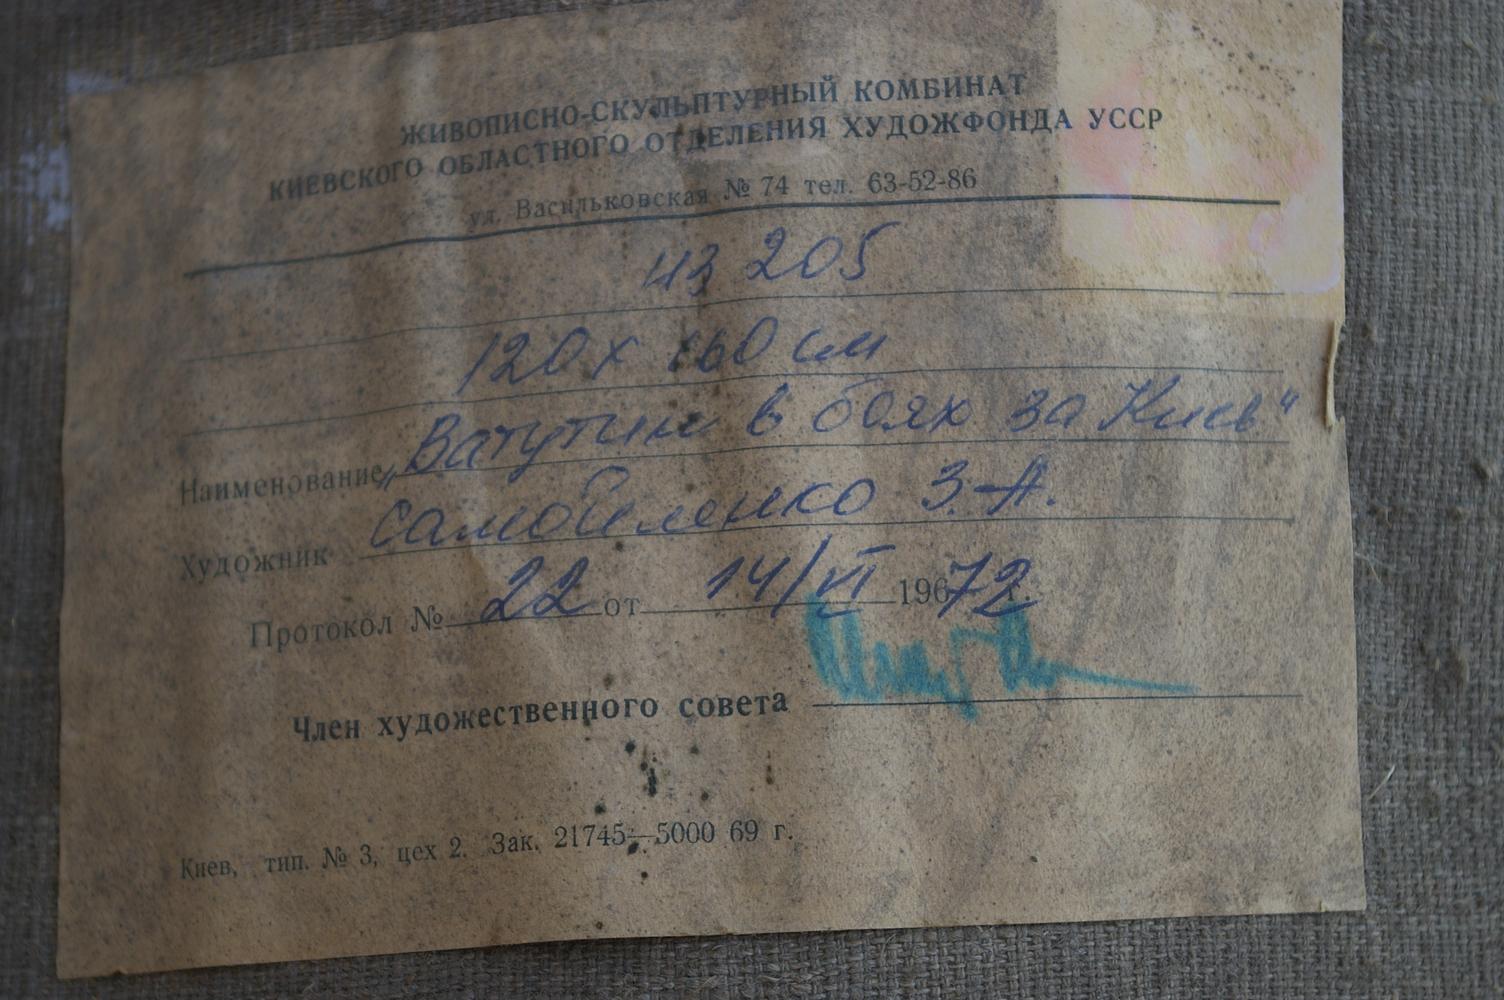 ЖИВОПИСНО-СКУЛЬПТУРНЫЙ КОМБИНАТ
КИЕВСКОГО ОБЛАСТНОГО ОТДЕЛЕНИЯ ХУДОЖФОНДА УССР
ул. Васильковская № 74 тел. 63-52-86
205
120 х 160 см
Наименование „Ватутин в боях за Киев“
Художник Самойленко З. А.
Протокол № 22 от 14/VI 19672 г.
Член художественного совета
Киев, тип. № 3, цех 2. Зак. 21745—5000 69 г.